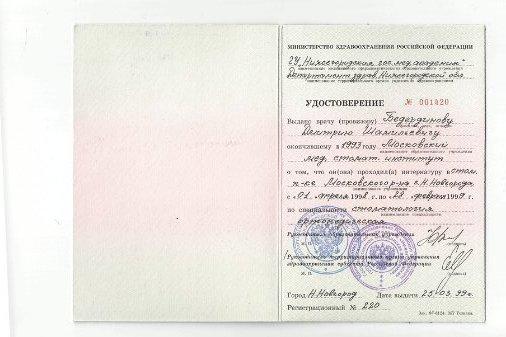 МИНИСТЕРСТВО ЗДРАВООХРАНЕНИЯ РОССИЙСКОЙ ФЕДЕРАЦИИ
ГУ „Нижегородская гос. мед. академия"
Департамент здрав. Нижегородской обл.
УДОСТОВЕРЕНИЕ № 001420
Выдано врачу (провизору) Бедердинову
Дмитрию Шамильевичу
окончившему в 1993 году Московский
мед. стомат. институт
о том, что он(она) проходил(а) интернатуру стом.
п-ке Московского р-на г. Н. Новгорода
с 01 апреля 1998 г. по 28 февраля 1999 г.
по специальности стоматология
ортопедическая
Руководитель образовательного учреждения
М. П.
Руководитель территориального органа управления
здравоохранением субъекта Российской Федерации
М. П.
Город Н. Новгород Дата выдачи 25.03.99г.
Регистрационный № 220